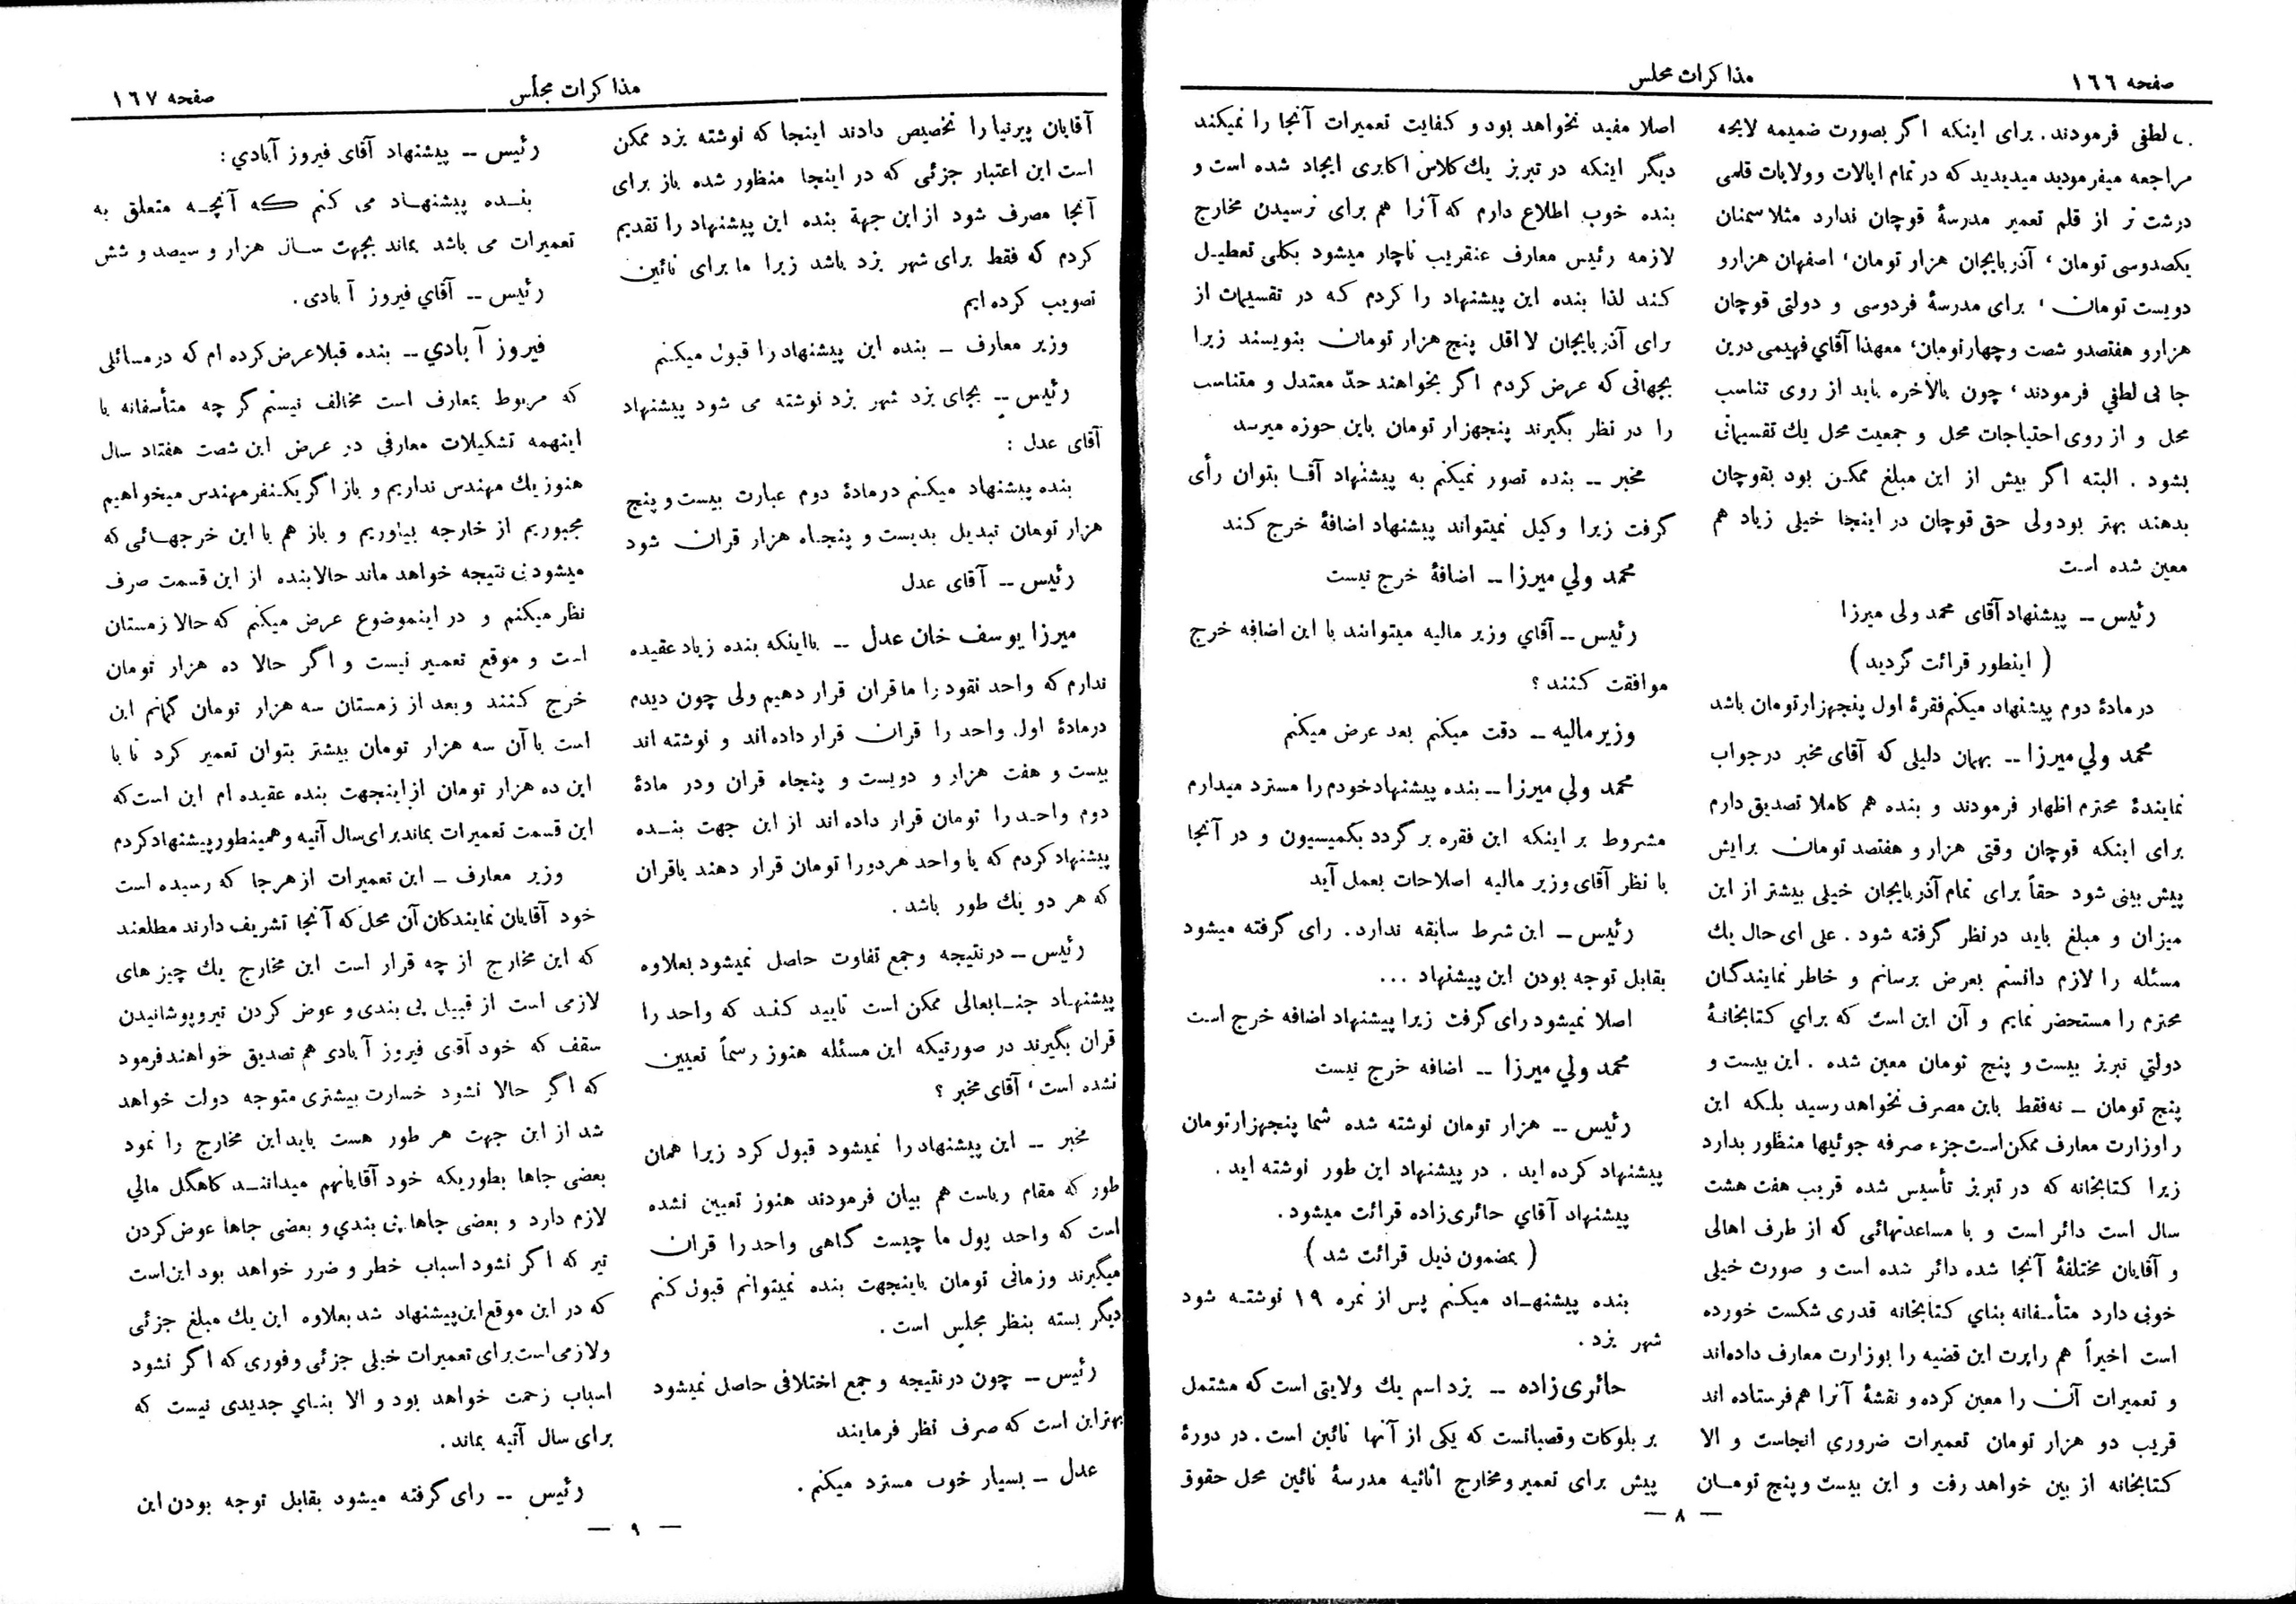 صفحه ١٦٦
مذاکرات مجلس
لطفی فرمودند. برای اینکه اگر بصورت ضمیمه لایحه
مراجعه میفرمودید میدیدید که در تمام ایالات و ولایات قلمی
درشت تر از قلم تعمیر مدرسهٔ قوچان ندارد مثلا سمنان
یکصدوسی تومان ، آذربایجان هزار تومان ، اصفهان هزار و
دویست تومان ، برای مدرسهٔ فردوسی و دولتی قوچان
هزار و هفتصدو شصت و چهار تومان ، معهذا آقای فهیمی درین
جا بی لطفی فرمودند ، چون بالاخره باید از روی تناسب
محل و از روی احتیاجات محل و جمعیت محل یك تقسیماتی
بشود . البته اگر بیش از این مبلغ ممکن بود بقوچان
بدهند بهتر بود ولی حق قوچان در اینجا خیلی زیاد هم
معین شده است
رئیس -- پیشنهاد آقای محمد ولی میرزا
( اینطور قرائت گردید )
در مادهٔ دوم پیشنهاد میکنم فقرهٔ اول پنجهزار تومان باشد
محمد ولي میرزا -- بهمان دلیلی که آقای مخبر در جواب
نمایندهٔ محترم اظهار فرمودند و بنده هم کاملا تصدیق دارم
برای اینکه قوچان وقتی هزار و هفتصد تومان برایش
پیش بینی شود حقاً برای تمام آذربایجان خیلی بیشتر از این
میزان و مبلغ باید در نظر گرفته شود . علی ای حال یك
مسئله را لازم دانستم بعرض برسانم و خاطر نمایندگان
محترم را مستحضر نمایم و آن این است که برای کتابخانهٔ
دولتي تبریز بیست و پنج تومان معین شده . این بیست و
پنج تومان -- نه فقط باین مصرف نخواهد رسید بلکه این
را وزارت معارف ممکن است جزء صرفه جوئیها منظور بدارد
زیرا کتابخانه که در تبریز تأسیس شده قریب هفت هشت
سال است دائر است و با مساعدتهائی که از طرف اهالی
و آقایان مختلفهٔ آنجا شده دائر شده است و صورت خیلی
خوبی دارد متأسفانه بنای کتابخانه قدری شکست خورده
است اخیراً هم راپرت این قضیه را بوزارت معارف داده‌اند
و تعمیرات آن را معین کرده و نقشهٔ آنرا هم فرستاده اند
قریب دو هزار تومان تعمیرات ضروری آنجاست و الا
کتابخانه از بین خواهد رفت و این بیست و پنج تومان
اصلا مفید نخواهد بود و کفایت تعمیرات آنجا را نمیکند
دیگر اینکه در تبریز یك کلاس اکابری ایجاد شده است و
بنده خوب اطلاع دارم که آنرا هم برای نرسیدن مخارج
لازمه رئیس معارف عنقریب ناچار میشود بکلی تعطیل
کند لذا بنده این پیشنهاد را کردم که در تقسیمات از
برای آذربایجان لااقل پنج هزار تومان بنویسند زیرا
بجهاتی که عرض کردم اگر بخواهند حدّ معتدل و متناسب
را در نظر بگیرند پنجهزار تومان باین حوزه میرسد
مخبر -- بنده تصور نمیکنم به پیشنهاد آقا بتوان رأی
گرفت زیرا وکیل نمیتواند پیشنهاد اضافهٔ خرج کند
محمد ولي میرزا -- اضافهٔ خرج نیست
رئیس -- آقای وزیر مالیه میتوانند با این اضافه خرج
موافقت کنند ؟
وزیر مالیه -- دقت میکنم بعد عرض میکنم
محمد ولي میرزا -- بنده پیشنهاد خودم را مسترد میدارم
مشروط بر اینکه این فقره بر گردد بکمیسیون و در آنجا
با نظر آقای وزیر مالیه اصلاحات بعمل آید
رئیس -- این شرط سابقه ندارد. رای گرفته میشود
بقابل توجه بودن این پیشنهاد ...
اصلا نمیشود رای گرفت زیرا پیشنهاد اضافه خرج است
محمد ولي میرزا -- اضافه خرج نیست
رئیس -- هزار تومان نوشته شده شما پنجهزار تومان
پیشنهاد کرده اید . در پیشنهاد این طور نوشته اید .
پیشنهاد آقای حائری‌زاده قرائت میشود .
( بمضمون ذیل قرائت شد )
بنده پیشنهاد میکنم پس از نمره ١٩ نوشته شود
شهر یزد .
حائری‌زاده -- یزد اسم یك ولایتی است که مشتمل
بر بلوکات و قصباتست که یکی از آنها نائین است . در دورهٔ
پیش برای تعمیر و مخارج اثاثیه مدرسهٔ نائین محل حقوق
— ٨ —
مذاکرات مجلس
صفحه ١٦٧
آقایان پیرنیا را تخصیص دادند اینجا که نوشته یزد ممکن
است این اعتبار جزئی که در اینجا منظور شده باز برای
آنجا مصرف شود از این جهة بنده این پیشنهاد را تقدیم
کردم که فقط برای شهر یزد باشد زیرا ما برای نائین
تصویب کرده ایم
وزیر معارف -- بنده این پیشنهاد را قبول میکنم
رئیس -- بجای یزد شهر یزد نوشته می شود پیشنهاد
آقای عدل :
بنده پیشنهاد میکنم در مادهٔ دوم عبارت بیست و پنج
هزار تومان تبدیل بدیست و پنجاه هزار قران شود
رئیس -- آقای عدل
میرزا یوسف خان عدل -- با اینکه بنده زیاد عقیده
ندارم که واحد نقود را ما قران قرار دهیم ولی چون دیدم
در مادهٔ اول واحد را قران قرار داده اند و نوشته اند
بیست و هفت هزار و دویست و پنجاه قران و در مادهٔ
دوم واحد را تومان قرار داده اند از این جهت بنده
پیشنهاد کردم که یا واحد هر دو را تومان قرار دهند یا قران
که هر دو یك طور باشد .
رئیس -- در نتیجه و جمع تفاوت حاصل نمیشود بعلاوه
پیشنهاد جنابعالی ممکن است تایید کند که واحد را
قران بگیرند در صورتیکه این مسئله هنوز رسماً تعیین
نشده است ، آقای مخبر ؟
مخبر -- این پیشنهاد را نمیشود قبول کرد زیرا همان
طور که مقام ریاست هم بیان فرمودند هنوز تعیین نشده
است که واحد پول ما چیست گاهی واحد را قران
میگیرند و زمانی تومان باینجهت بنده نمیتوانم قبول کنم
دیگر بسته بنظر مجلس است .
رئیس -- چون در نتیجه و جمع اختلافی حاصل نمیشود
بهتر این است که صرف نظر فرمایند
عدل -- بسیار خوب مسترد میکنم .
رئیس -- پیشنهاد آقای فیروز آبادي :
بنده پیشنهاد می کنم که آنچه متعلق به
تعمیرات می باشد بماند بجهت سال هزار و سیصد و شش
رئیس -- آقاي فیروز آبادی .
فیروز آبادي -- بنده قبلا عرض کرده ام که در مسائلی
که مربوط بمعارف است مخالف نیستم گر چه متأسفانه با
اینهمه تشکیلات معارفي در عرض این شصت هفتاد سال
هنوز یك مهندس نداریم و باز اگر یکنفر مهندس میخواهیم
مجبوریم از خارجه بیاوریم و باز هم با این خرجهائی که
میشود بی نتیجه خواهد ماند حالا بنده از این قسمت صرف
نظر میکنم و در اینموضوع عرض میکنم که حالا زمستان
است و موقع تعمیر نیست و اگر حالا ده هزار تومان
خرج کنند و بعد از زمستان سه هزار تومان گمانم این
است با آن سه هزار تومان بیشتر بتوان تعمیر کرد تا با
این ده هزار تومان از اینجهت بنده عقیده ام این است که
این قسمت تعمیرات بماند برای سال آتیه و همینطور پیشنهاد کردم
وزیر معارف -- این تعمیرات از هر جا که رسیده است
خود آقایان نمایندگان آن محل که آنجا تشریف دارند مطلعند
که این مخارج از چه قرار است این مخارج یك چیز های
لازمی است از قبیل پی بندی و عوض کردن تیر و پوشانیدن
سقف که خود آقای فیروز آبادی هم تصدیق خواهند فرمود
که اگر حالا نشود خسارت بیشتری متوجه دولت خواهد
شد از این جهت هر طور هست باید این مخارج را نمود
بعضی جاها بطوریکه خود آقایانهم میدانند کاهگل مالي
لازم دارد و بعضی جاها پی بندي و بعضی جاها عوض کردن
تیر که اگر نشود اسباب خطر و ضرر خواهد بود این است
که در این موقع این پیشنهاد شد بعلاوه این یك مبلغ جزئی
ولازمی است برای تعمیرات خیلی جزئی و فوری که اگر نشود
اسباب زحمت خواهد بود و الا بنای جدیدی نیست که
برای سال آتیه بماند .
رئیس -- رای گرفته میشود بقابل توجه بودن این
— ٩ —